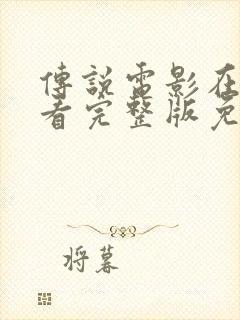 傳說電影在
看完整版免
将暮